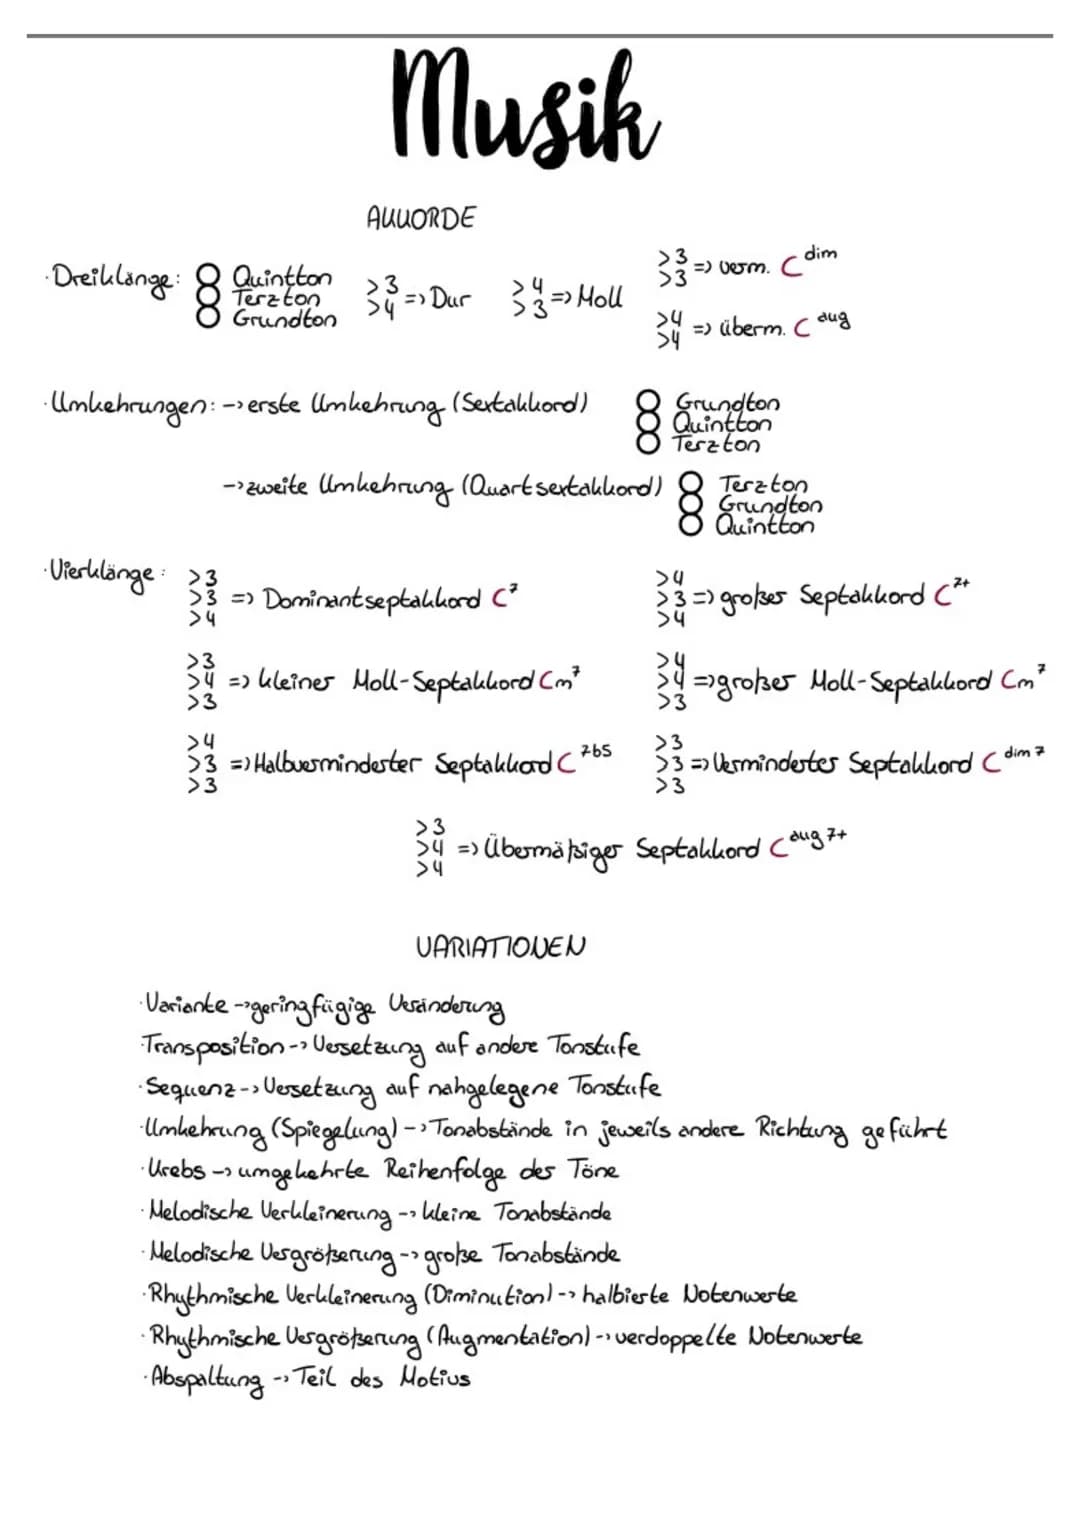 Musik
AKKORDE
·Dreiklänge: Quintton
Terzton
Grundton
>3
>4 => Dur
>4
>3 => Moll
>3
>3 => verm. C dim
>4
>4 => überm. C aug
·Umkehrungen: -> erste Umkehrung (Sextakkord)
Grundton
Quintton
Terzton
-> zweite Umkehrung (Quartsextakkord)
Terzton
Grundton
Quintton
·Vierklänge:
>3
>3 => Dominantseptakkord C⁷
>4
>4
>3 => großer Septakkord C⁷⁺
>4
>3
>4 => kleiner Moll-Septakkord Cm⁷
>3
>4
>4 => großer Moll-Septakkord Cm⁷
>3
>4
>3 => Halbverminderter Septakkord C 7b5
>3
>3
>3 => Vermindertes Septakkord C dim 7
>3
>3
>4 => Übermäßiger Septakkord C aug 7+
>4
VARIATIONEN
·Variante -> geringfügige Veränderung
·Transposition -> Versetzung auf andere Tonstufe
·Sequenz -> Versetzung auf nahgelegene Tonstufe
·Umkehrung (Spiegelung) -> Tonabstände in jeweils andere Richtung geführt
·Krebs -> umgekehrte Reihenfolge des Töne
·Melodische Verkleinerung -> kleine Tonabstände
·Melodische Vergrößerung -> große Tonabstände
·Rhythmische Verkleinerung (Diminution) -> halbierte Notenwerte
·Rhythmische Vergrößerung (Augmentation) -> verdoppelte Notenwerte
·Abspaltung -> Teil des Motivs